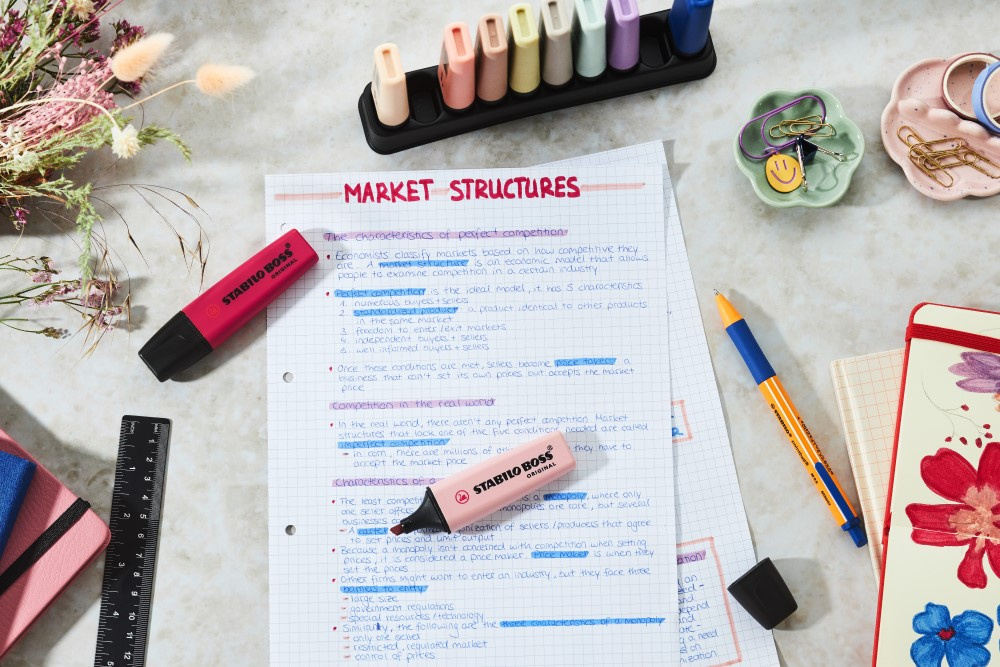 MARKET STRUCTURES
The characteristics of perfect competition
Economists classify markets based on how competitive they
are. A market structure is an economic model that allows
people to examine competition in a certain industry
Perfect competition is the ideal model, it has 5 characteristics
1. numerous buyers + sellers
2. standardized product: a product identical to other products
in the same market
3. freedom to enter/exit markets
4. independent buyers + sellers
5. well informed buyers + sellers
Once these conditions are met, sellers become price takers: a
business that can't set its own prices but accepts the market
price
Competition in the real world
In the real world, there aren't any perfect competition. Market
structures that lack one of the five conditions needed are called
imperfect competition
- in corn, there are millions of they have to
accept the market price
Characteristics of a
The least competi is a monopoly, where only
one seller monopolies are rare, but several
businesses
- A cartel organization of sellers/producers that agree
to set prices and limit output
Because a monopoly isn't concerned with competition when setting
prices, it is considered a price maker. Price maker is when they
set the prices
Other firms might want to enter an industry, but they face three
barriers to entry
- large size
- government regulations
- special resources/technology
Similarly, the following are the three characteristics of a monopoly
- only one seller
- restricted, regulated market
- control of prices
STABILO BOSS
ORIGINAL
STABILO BOSS
ORIGINAL